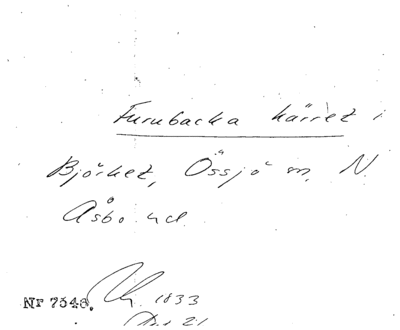 Furubacka kärret i
Björket, Össjö m. N.
Åsbo hd.
Nr 7548. 1833
21